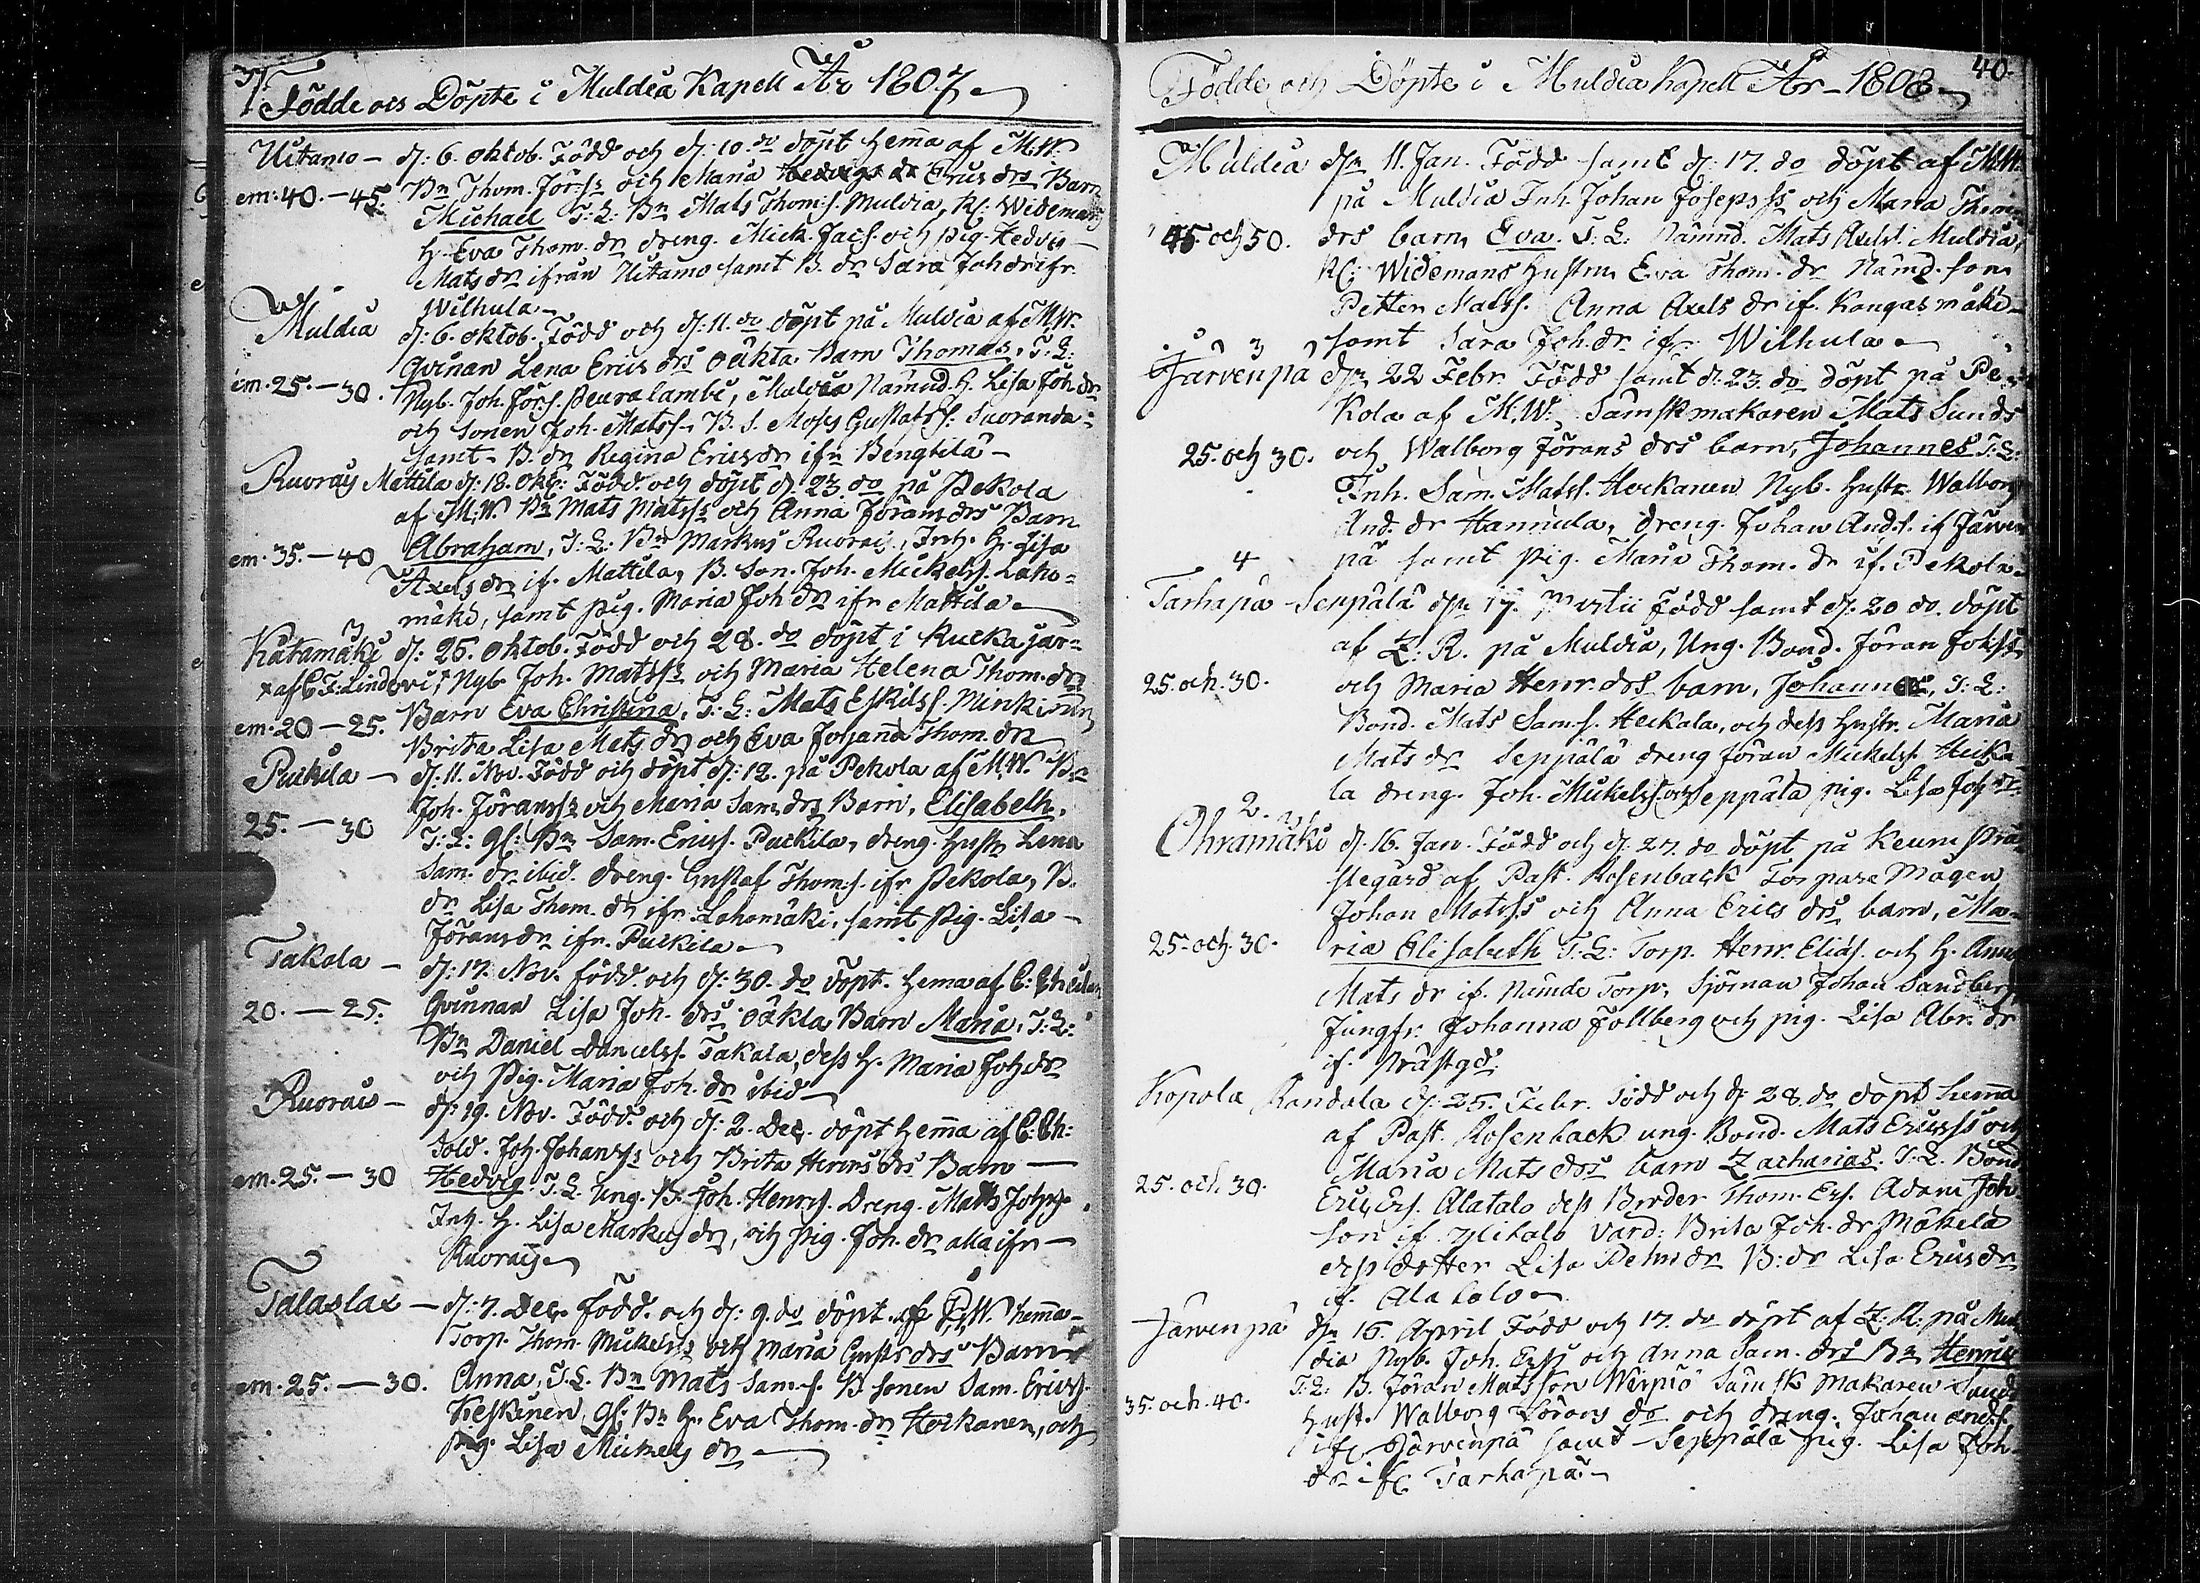 Födde och Döpte i Muldia Kapell År 1807
Uitamo – d: 6. Oktob. Född och d: 10. do döpt hema af M.W.
em: 40.–45. Bn Thom. Förss och Maria Erics drs Barn
Michael T: L: Bn Mats Thom: s. Muldia, Kl: Widemans
h. Eva Thom. dr dreng. Mick. Jacs. och pig. Hedvig
Mats dr ifrån Uitamo samt B. dr Sara Joh dr ifr.
Wilhula
Muldia d: 6. Oktob. Född och d: 11. do döpt på Muldia af M.W.
Qvinan Lena Erics drs oäkta Barn Thomas, T. L:
em. 25.–30. Nyb. Joh. Förs. Peuralambi, Muldia Nämnd. h. Lisa Joh. dr
och Sonen Joh. Matss. B. S. Moses Gustafs s: Suoranda
samt B. dr Regina Ericsdr ifr Bengtilä
Ruorais Mattila d: 18. Okt: Född och döpt d: 23. do på Pekola
af M:W. Bn Mats Matss och Anna Förans drs Barn
em. 35.–40 Abraham, T: L: Bn Markus Ruorais, Inh. h. Lisa
Axels dr if. Mattila, B. Son. Joh. Mickelss. Laho=
mäki, samt pig. Maria Joh dr ifr Mattila
Kätämäki d: 25. Oktob. Född och 28. do döpt i Kuckajär=
x af C. F: Lind vi,x Nyb. Joh. Matss och Maria Helena Thom. drs
em. 20–25. Barn Eva Christina, T: L: Mats Eskilss. Minkinen
Brita Lisa Mats dr och Eva Johanna Thom. dr
Puikila – d: 11. Nov. Född och döpt d: 12. på Pekola af M.W. Bn
Joh. Föranss och Maria Sam. drs Barn, Elisabeth,
25.–30 T: L: gl: Bn Sam. Ericss. Puikila, dreng. hustr Lena
Sam. dr ibid. dreng. Gustaf Thom: s. ifr Pekola, B.
dr Lisa Thom. dr ifr. Lahomäki, samt pig. Lisa
Föransdr ifr. Puikila
Takala – d: 17. Nov. född och d: 30. do döpt hema af C:
20.–25. Qvinnan Lisa Joh. drs oäkta Barn Maria, T: L:
Bn Daniel Danielss. Takala, dess h. Maria Joh dr
och Pig. Maria Joh. dr ibid
Ruorais – d: 19. Nov. Född och d: 2. Dec. döpt hema af C: Ch:
Sold. Joh. Johanss och Brita Henrics drs Barn
em. 25.–30 Hedvig. T. L. Ung. B. Joh. Henrss. Dreng. Mats Johss.
Inh. h. Lisa Markus dr, och pig. Joh. dr alla ifr
Ruorais
Talaslax – d: 7. Dec. född och d: 9. do döpt af P: W. hema
Torp. Thom. Mickelss och Maria Gusts drs Barn
em. 25.–30. Anna, T. L. Bn Mats Sam. s. B. sonen Sam. Ericss.
Keskinen, gl: Bn h. Eva Thom. dr Heikanen, och
pig. Lisa Mickels dr
40.
Födde och Döpte i Muldia Kapell År 1808
Muldia den 11. Jan. Född samt d: 17. do döpt af M.W.
på Muldia Inh. Johan Josepss och Maria Thom
45. och 50. drs barn Eva. T: L: Nämnd. Mats Axelss. Muldia,
Kl: Widemans hustru Eva Thom. dr Nämd. son
Petter Matss. Anna Axels dr if. Kangasmäki
samt Sara Joh. dr ifr. Wilhula
3
Järvenpä den 22 Febr. Född samt d: 23. do döpt på Pe
kola af M.W:, Sämskmakaren Mats Sunds
25. och 30. och Walborg Förans drs barn, Johannes T: L:
Inh. Sam. Matss. Heckanen Nyb. hustr Walborg
And. dr Hannula, dreng. Johan Ands. if Järven
4 pä samt pig. Maria Thom. dr if. Pekola
Tarhapä Seppälä den 17. Martii Född samt d: 20 do. döpt
af Z: R. på Muldia, Ung. Bond. Föran Johss
25. och. 30. och Maria Henr. drs barn, Johannes, T: L:
Bond. Mats Sam. s. Heckala, och dess hustr. Maria
Mats dr Seppälä dreng Föran Mickelss. Heika
la dreng. Joh. Mickelss. och Seppälä pig. Lisa Joh dr
2.
Ohramäki d: 16. Jan. Född och d: 27. do döpt på Keuru Prä
stegård af Past. Rosenback Torpare Mågen
Johan Matss och Anna Erics drs barn, Ma
25. och. 30. ria Elisabeth T: L: Torp. Henr. Elias. och h. Anna
Mats dr if. Nämde Torp, Sjöman Johan Sandberg
Jungfr. Johanna Follberg och pig. Lisa Abr. dr
if. Prästgd.
Kopola Randala d: 25. Febr. Född och d: 28. do döpt hema
af Past. Rosenback ung. Bond. Mats Ericss och
Maria Mats drs barn Zacharias. T. L. Bond
25. och 30. Eric Ers. Alatalo dess Broder Thom. Ers. Adam Joh
son if. Ylitalo Värd: Brita Joh. dr Mäkelä
dess dotter Lisa Pehr dr B: dr Lisa Erics dr
if. Alatalo
Järvenpä den 15. April Född och 17. do döpt af Z: R: på Mul
dia Nyb. Joh. Erss och Anna Sam. drs Bn Henric
35. och. 40. T. L: B. Föran Matsson Wirpiö Sämskmakaren Sunds
hust. Walborg Förans dr och dreng. Johan Ands.
ifr Järvenpä samt Seppälä pig. Lisa Joh
dr ifr Tarhapä